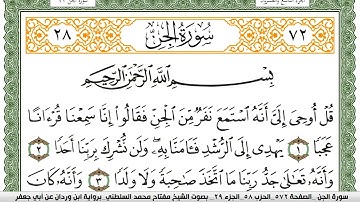 ٧٢ سُورَةُ الجِنِّ ٢٨
بِسْمِ اللَّهِ الرَّحْمَٰنِ الرَّحِيمِ
قُلْ أُوحِىَ إِلَىَّ أَنَّهُ ٱسْتَمَعَ نَفَرٌ مِّنَ ٱلْجِنِّ فَقَالُوا إِنَّا سَمِعْنَا قُرْءَانًا
عَجَبًا ١ يَهْدِى إِلَى ٱلرُّشْدِ فَـَٔامَنَّا بِهِۦ وَلَن نُّشْرِكَ بِرَبِّنَا أَحَدًا ٢
وَأَنَّهُۥ تَعَٰلَىٰ جَدُّ رَبِّنَا مَا ٱتَّخَذَ صَٰحِبَةً وَلَا وَلَدًا ٣ وَأَنَّهُۥ كَانَ
سورة الجن _الصفحة ٥٧٢_الحزب ٥٨_الجزء ٢٩ _ بصوت الشيخ مفتاح محمد السلطني _برواية ابن وردان عن أبي جعفر